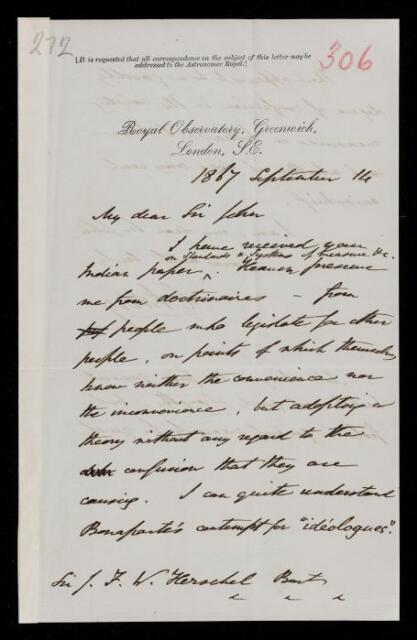 272
306
[It is requested that all correspondence on the subject of this letter may be
addressed to the Astronomer Royal.]
Royal Observatory, Greenwich,
London, S.E.
1867 September 14
My dear Sir John
I have received your
on Standards & Systems of measure &c.
Indian paper. Heaven preserve
me from doctrinaires — from
people who legislate for other
people, on points of which themselves
know neither the convenience nor
the inconvenience, but adopting a
theory without any regard to the
confusion that they are
causing. I can quite understand
Bonaparte's contempt for "idéologues".
Sir J. F. W. Herschel Bart